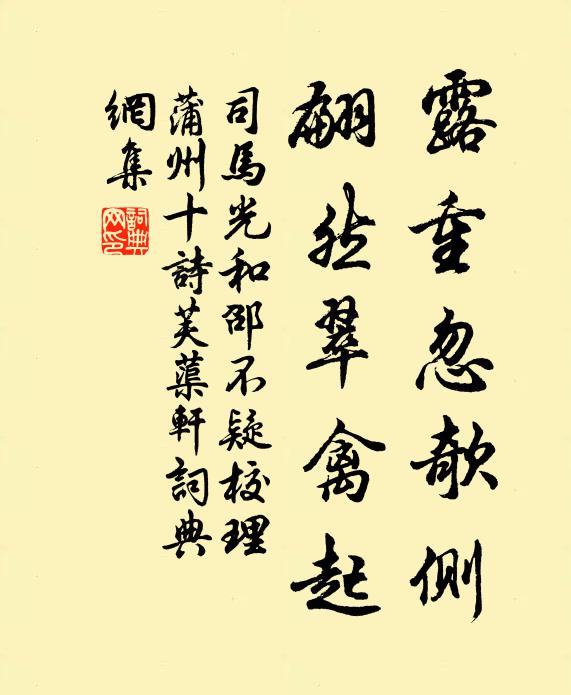 露重忽欹側
翩然翠禽起
司馬光和邵不疑校理
蒲州十詩芙蕖軒詞典
網集
詞典网印